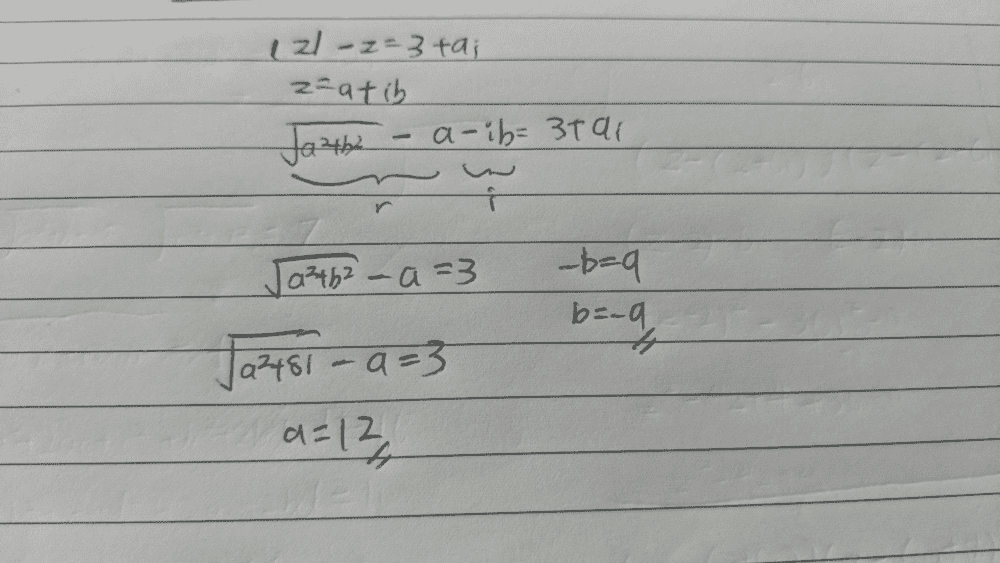 |z| - z = 3 + 9i
z = a + ib
√(a²+b²) - a - ib = 3 + 9i
r i
√(a²+b²) - a = 3 -b = 9
b = -9
√(a²+81) - a = 3
a = 12